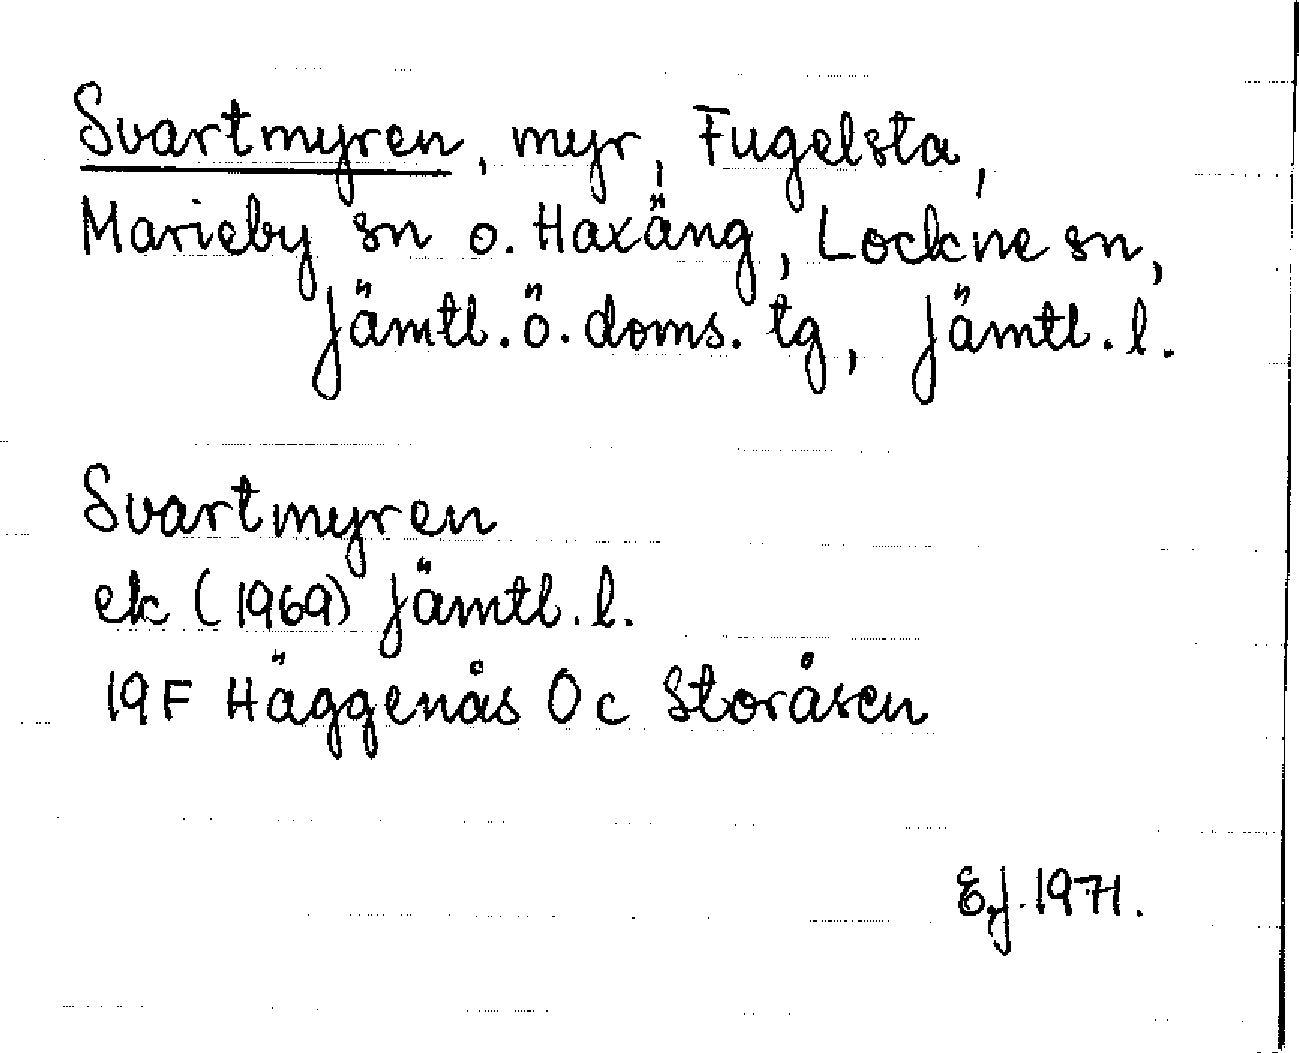 Svartmyren, myr, Fugelsta,
Marieby sn o. Haxäng, Lockne sn,
Jämtl. ö. doms. tg, Jämtl. l.
Svartmyren
ek (1969) Jämtl. l.
19F Häggenås 0c Storåsen
E.J. 1971.